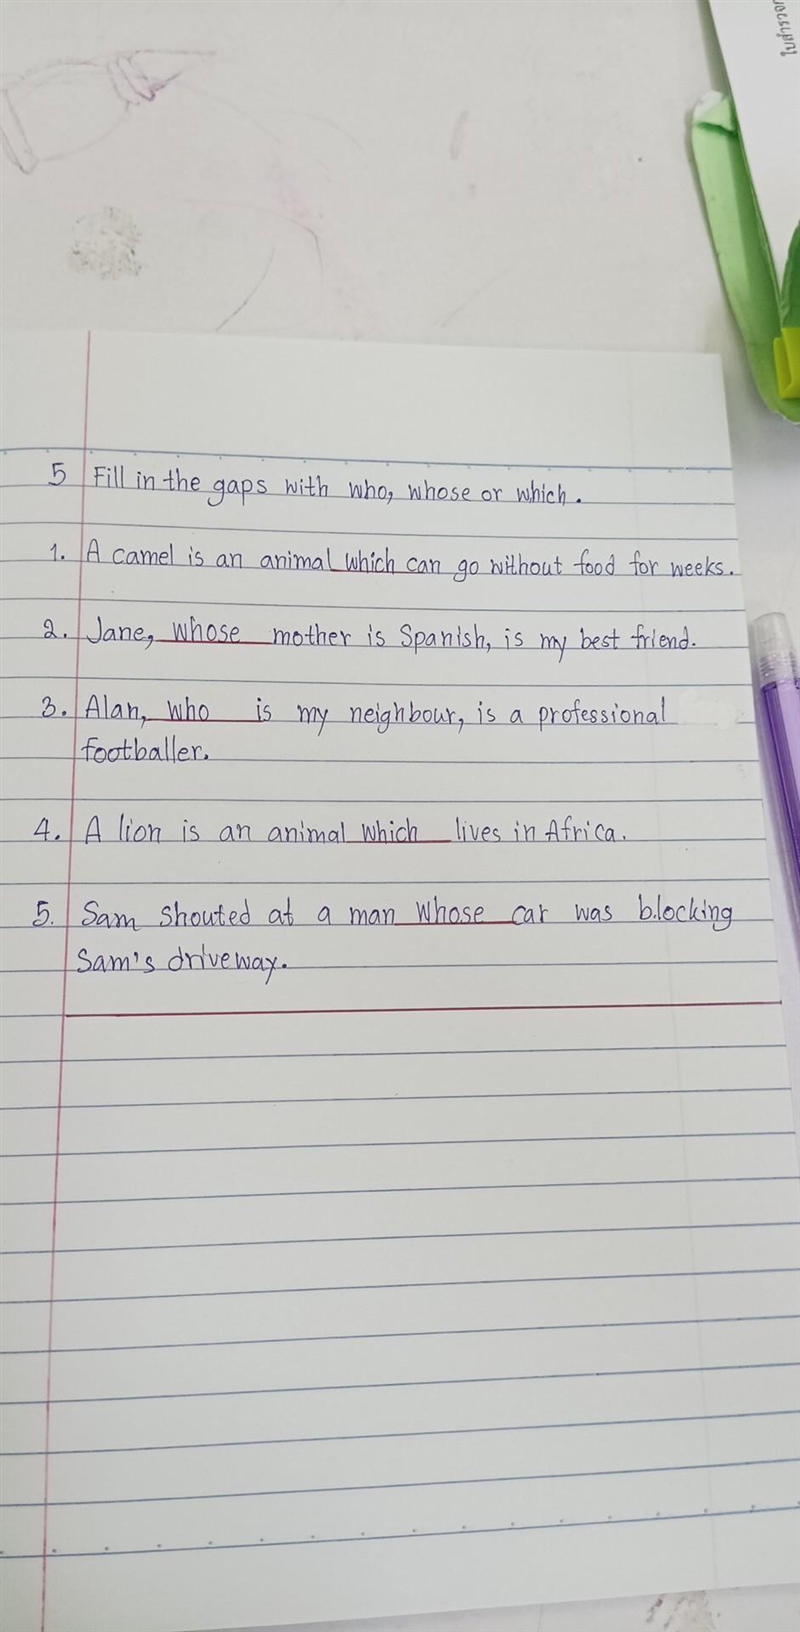 ใบสำรวจ
5 Fill in the gaps with who, whose or which.
1. A camel is an animal which can go without food for weeks.
2. Jane, whose mother is Spanish, is my best friend.
3. Alan, who is my neighbour, is a professional
footballer.
4. A lion is an animal which lives in Africa.
5. Sam shouted at a man whose car was blocking
Sam's driveway.